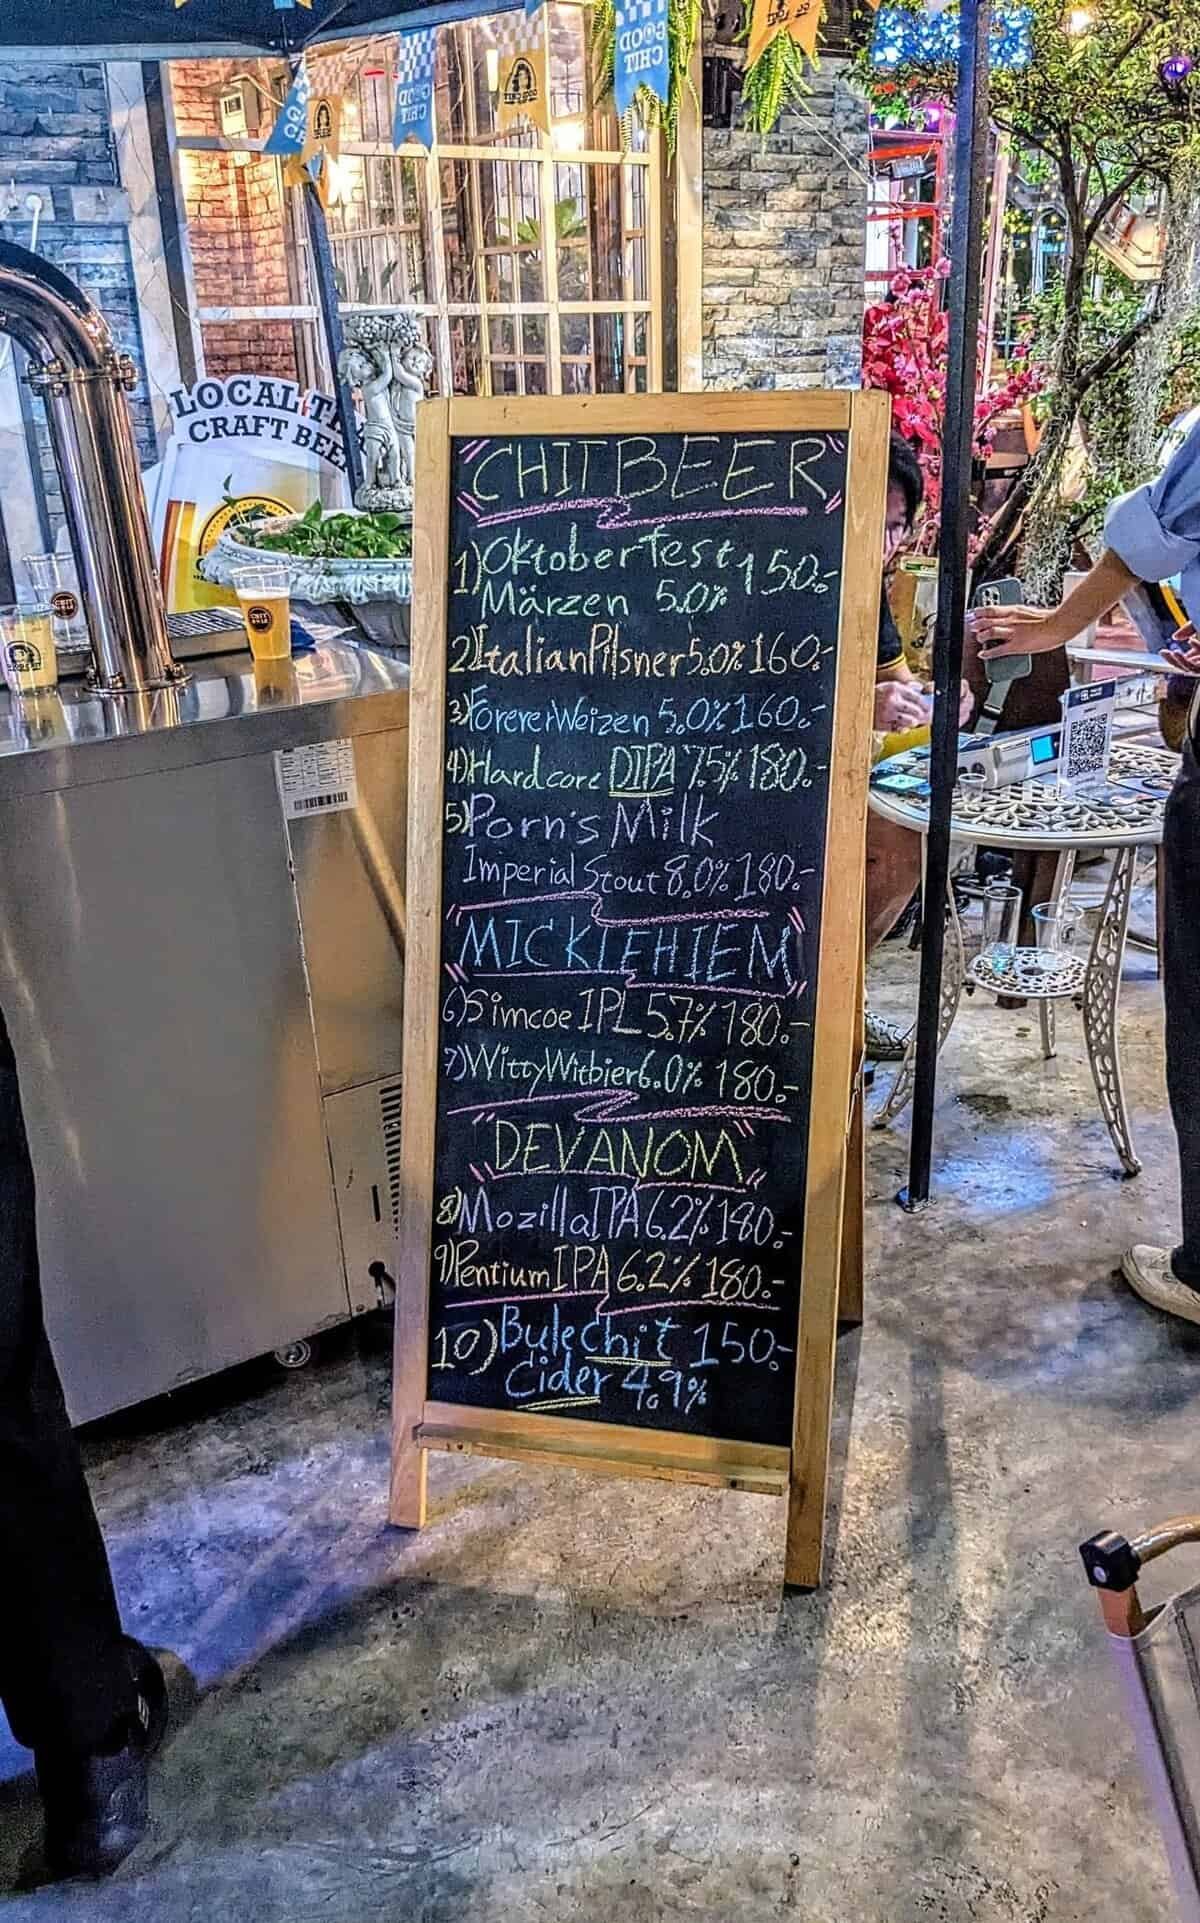 GOOD
CHIT
LOCAL
CRAFT BEE
"CHIT BEER"
1) Oktoberfest 150.-
Märzen 5.0%
2) Italian Pilsner 5.0% 160.-
3) Forever Weizen 5.0% 160.-
4) Hardcore DIPA 7.5% 180.-
5) Porn's Milk
Imperial Stout 8.0% 180.-
"MICKLEHIEM"
6) Simcoe IPL 5.7% 180.-
7) Witty Witbier 6.0% 180.-
"DEVANOM"
8) Mozilla IPA 6.2% 180.-
9) Pentium IPA 6.2% 180.-
10) Bule Chit 150.-
Cider 4.9%